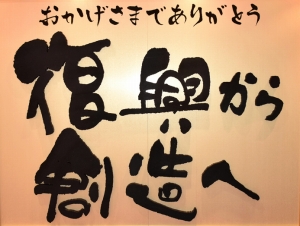 おかげさまでありがとう
復興から
創造へ